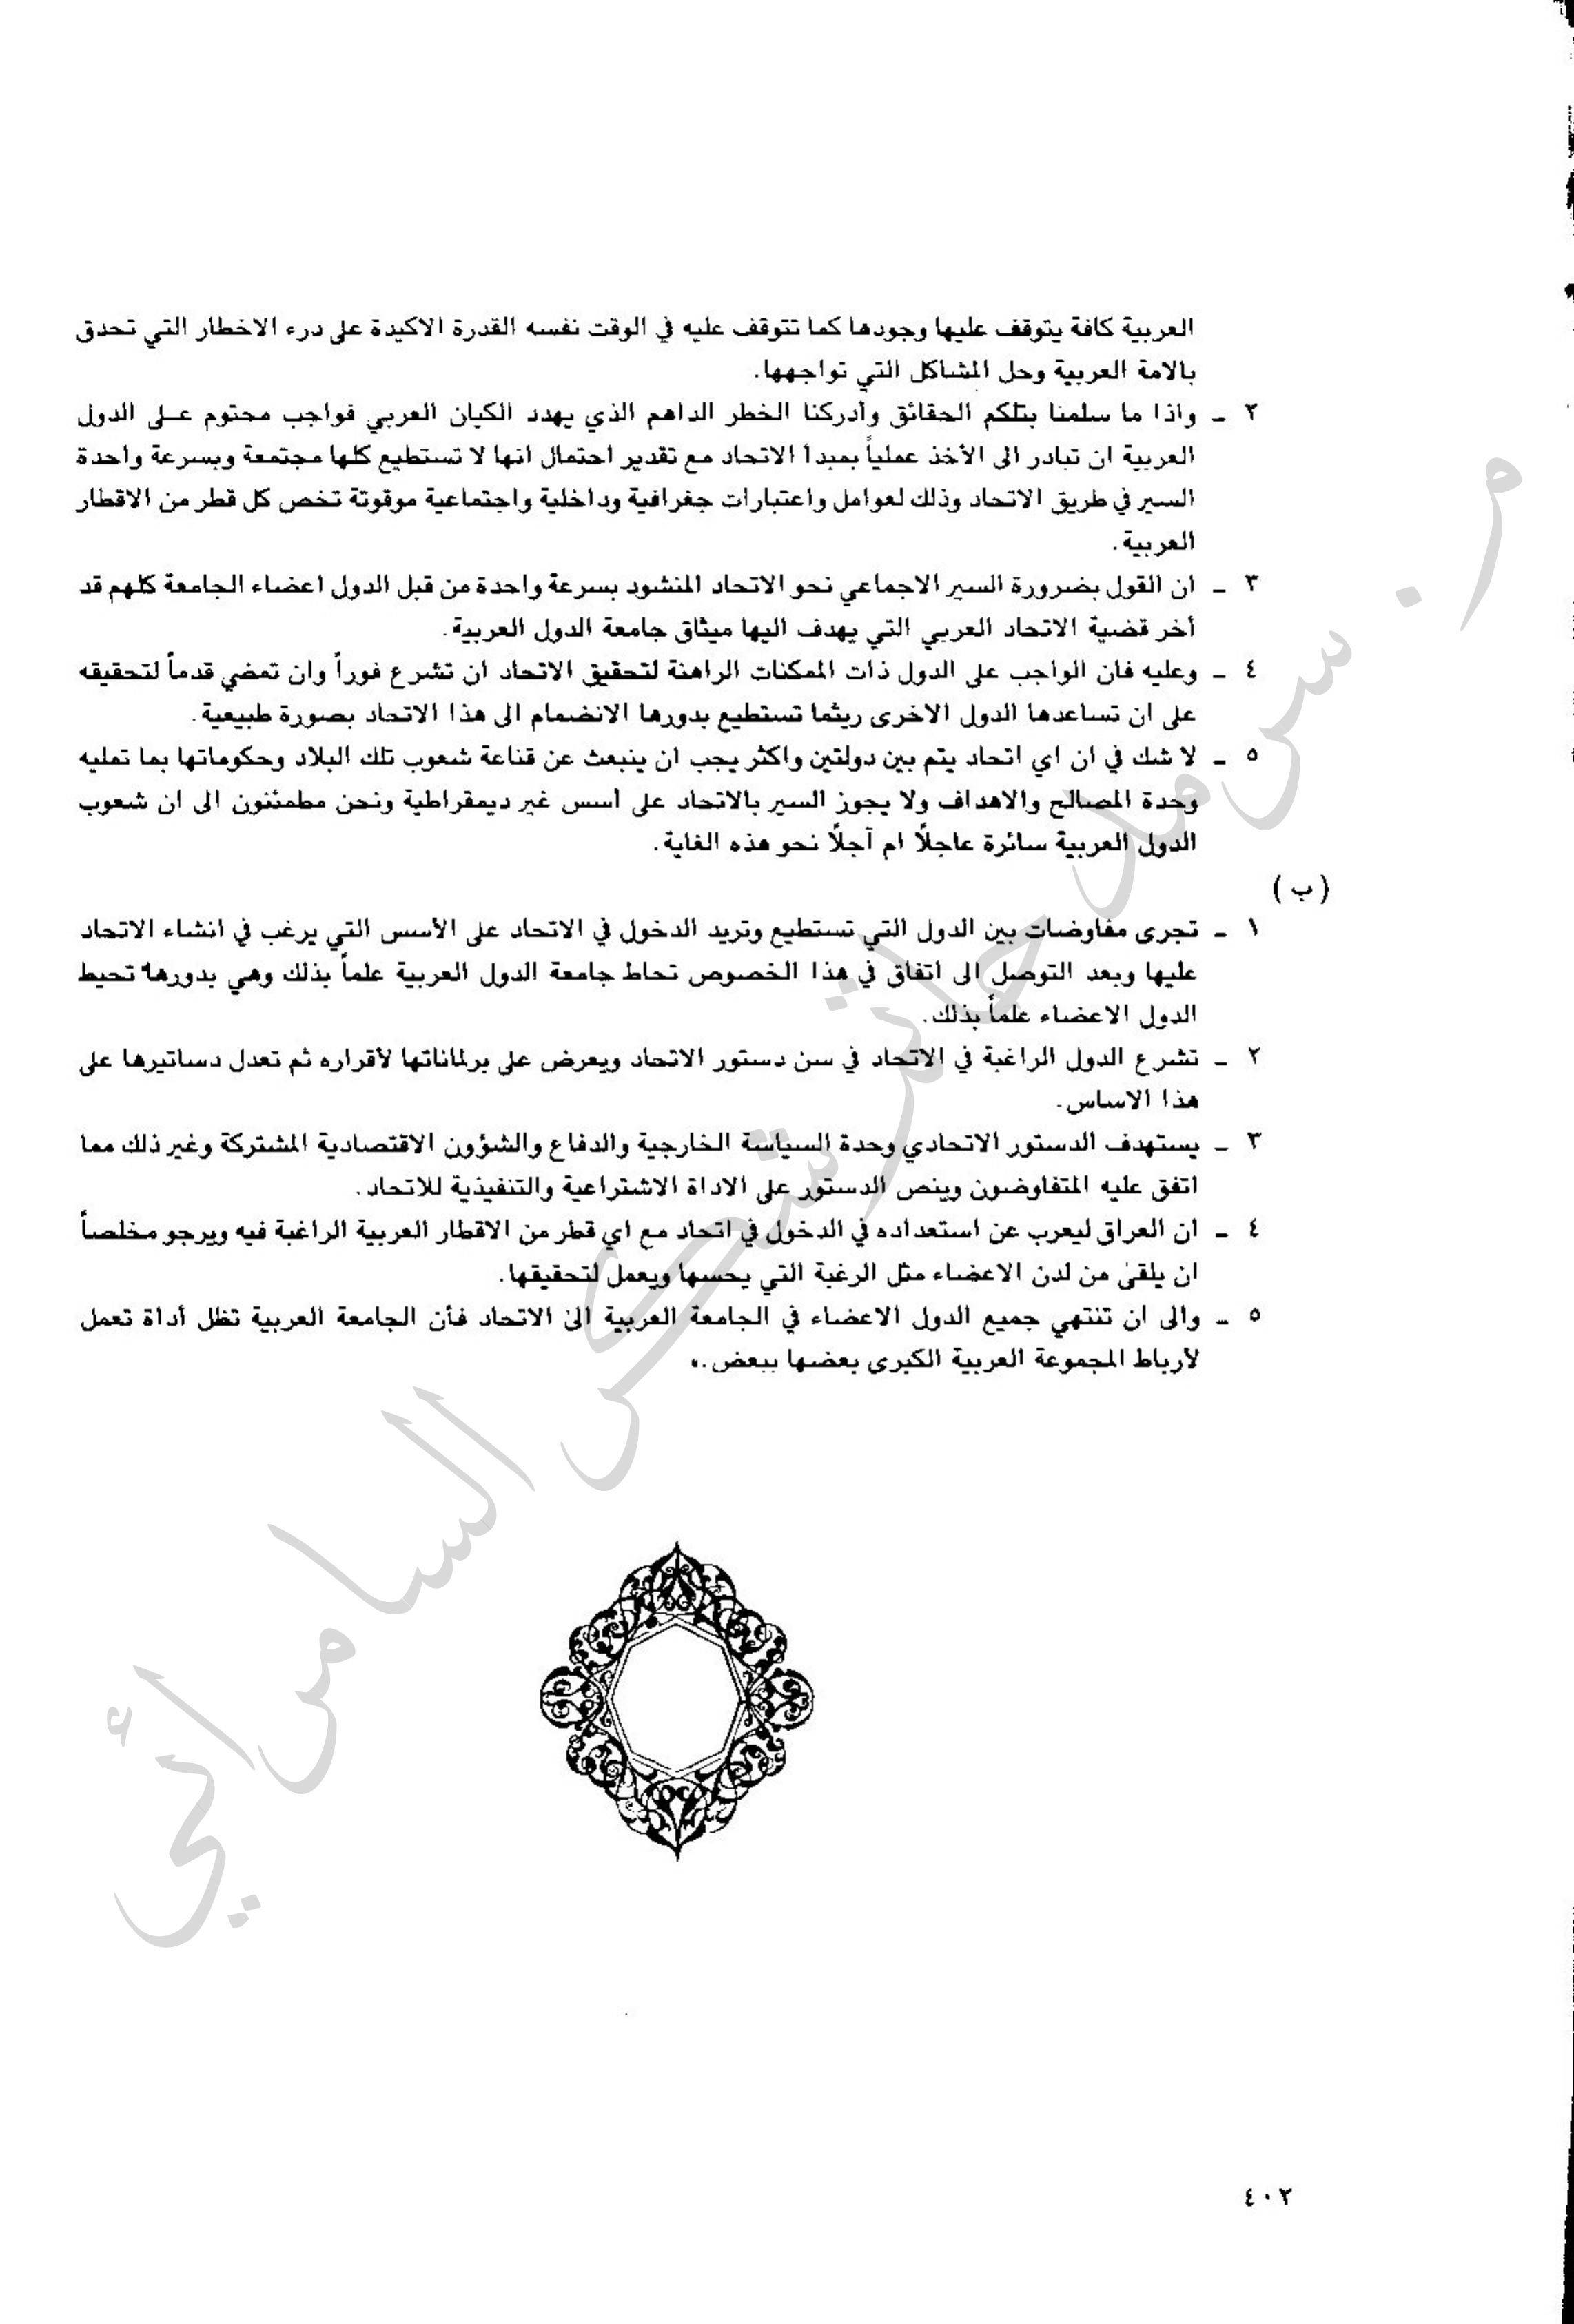 العربية كافة يتوقف عليها وجودها كما تتوقف عليه في الوقت نفسه القدرة الاكيدة على درء الاخطار التي تحدق
بالامة العربية وحل المشاكل التي تواجهها.
٢ - واذا ما سلمنا بتلكم الحقائق وأدركنا الخطر الداهم الذي يهدد الكيان العربي فواجب محتوم على الدول
العربية ان تبادر الى الأخذ عملياً بمبدأ الاتحاد مع تقدير احتمال انها لا تستطيع كلها مجتمعة وبسرعة واحدة
السير في طريق الاتحاد وذلك لعوامل واعتبارات جغرافية وداخلية واجتماعية موقوتة تخص كل قطر من الاقطار
العربية.
٣ - ان القول بضرورة السير الاجماعي نحو الاتحاد المنشود بسرعة واحدة من قبل الدول اعضاء الجامعة كلهم قد
أخر قضية الاتحاد العربي التي يهدف اليها ميثاق جامعة الدول العربية.
٤ - وعليه فان الواجب على الدول ذات الممكنات الراهنة لتحقيق الاتحاد ان تشرع فوراً وان تمضي قدماً لتحقيقه
على ان تساعدها الدول الاخرى ريثما تستطيع بدورها الانضمام الى هذا الاتحاد بصورة طبيعية.
٥ - لا شك في ان اي اتحاد يتم بين دولتين واكثر يجب ان ينبعث عن قناعة شعوب تلك البلاد وحكوماتها بما تمليه
وحدة المصالح والاهداف ولا يجوز السير بالاتحاد على أسس غير ديمقراطية ونحن مطمئنون الى ان شعوب
الدول العربية سائرة عاجلاً ام آجلاً نحو هذه الغاية.
(ب)
١ - تجرى مفاوضات بين الدول التي تستطيع وتريد الدخول في الاتحاد على الأسس التي يرغب في انشاء الاتحاد
عليها وبعد التوصل الى اتفاق في هذا الخصوص تحاط جامعة الدول العربية علماً بذلك وهي بدورها تحيط
الدول الاعضاء علماً بذلك.
٢ - تشرع الدول الراغبة في الاتحاد في سن دستور الاتحاد ويعرض على برلماناتها لأقراره ثم تعدل دساتيرها على
هذا الاساس.
٣ - يستهدف الدستور الاتحادي وحدة السياسة الخارجية والدفاع والشؤون الاقتصادية المشتركة وغير ذلك مما
اتفق عليه المتفاوضون وينص الدستور على الاداة الاشتراعية والتنفيذية للاتحاد.
٤ - ان العراق ليعرب عن استعداده في الدخول في اتحاد مع اي قطر من الاقطار العربية الراغبة فيه ويرجو مخلصاً
ان يلقى من لدن الاعضاء مثل الرغبة التي يحسها ويعمل لتحقيقها.
٥ - والى ان تنتهي جميع الدول الاعضاء في الجامعة العربية الى الاتحاد فأن الجامعة العربية تظل أداة تعمل
لأرباط المجموعة العربية الكبرى بعضها ببعض.»
٤٠٢